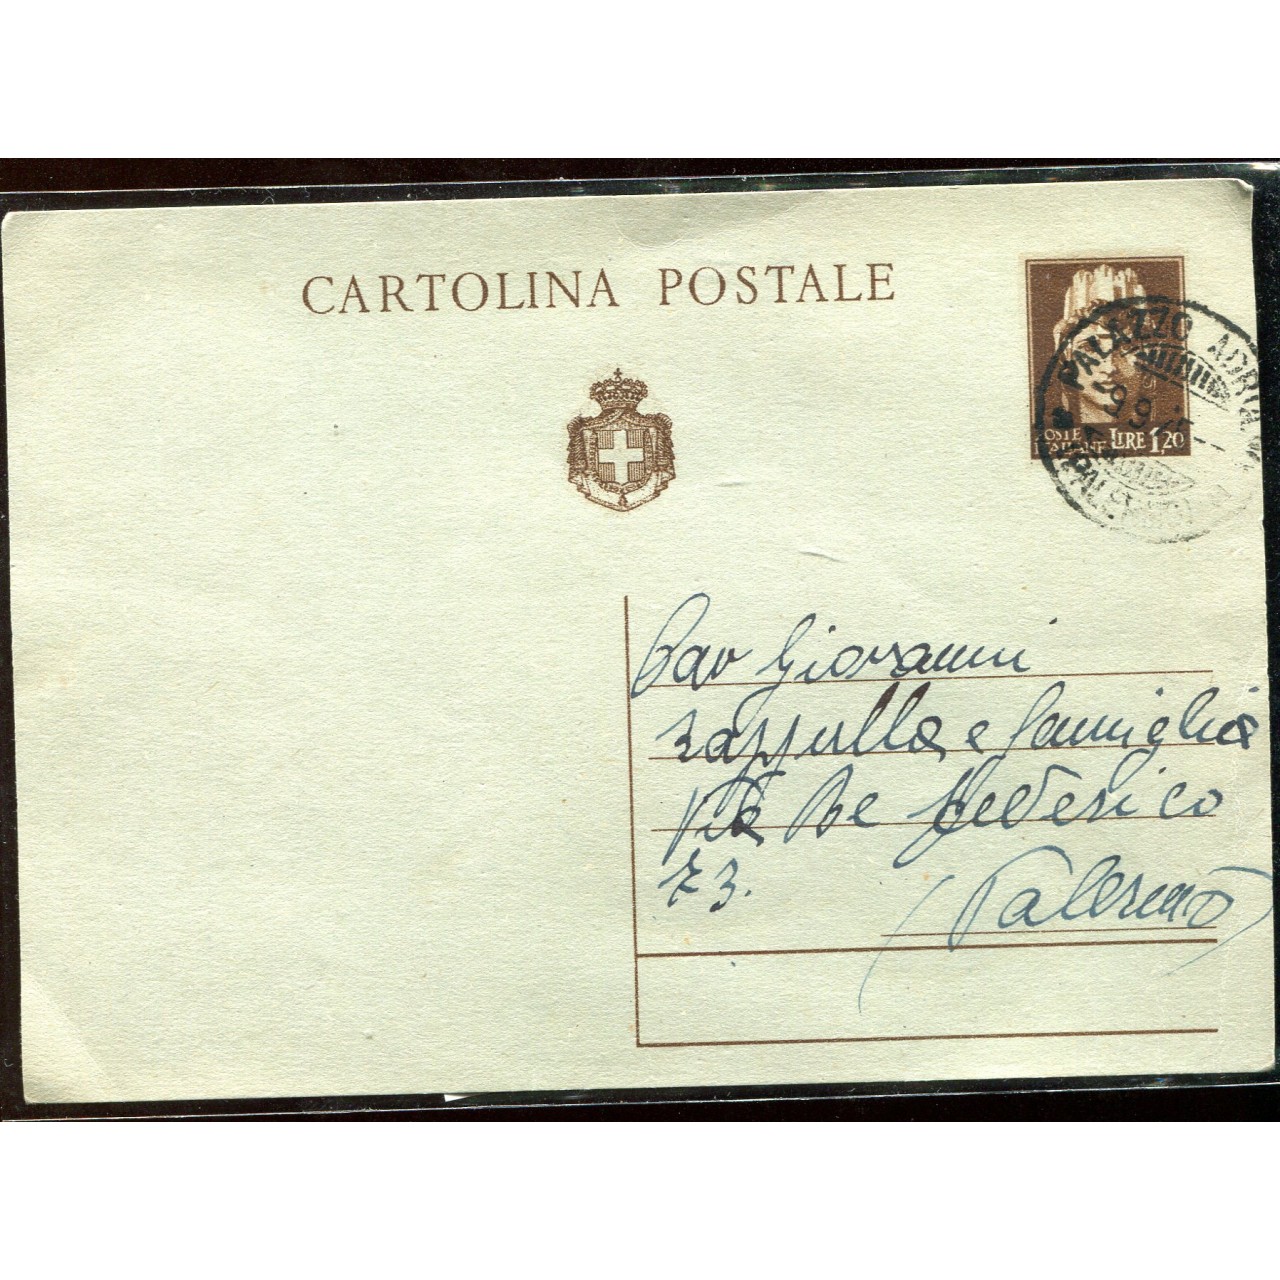 CARTOLINA POSTALE
POSTE
ITALIANE LIRE 1,20
PALAZZO ADRIA
29.9.45
Giovanni
Zappulla e famiglia
Via Re Federico
73.
Palermo